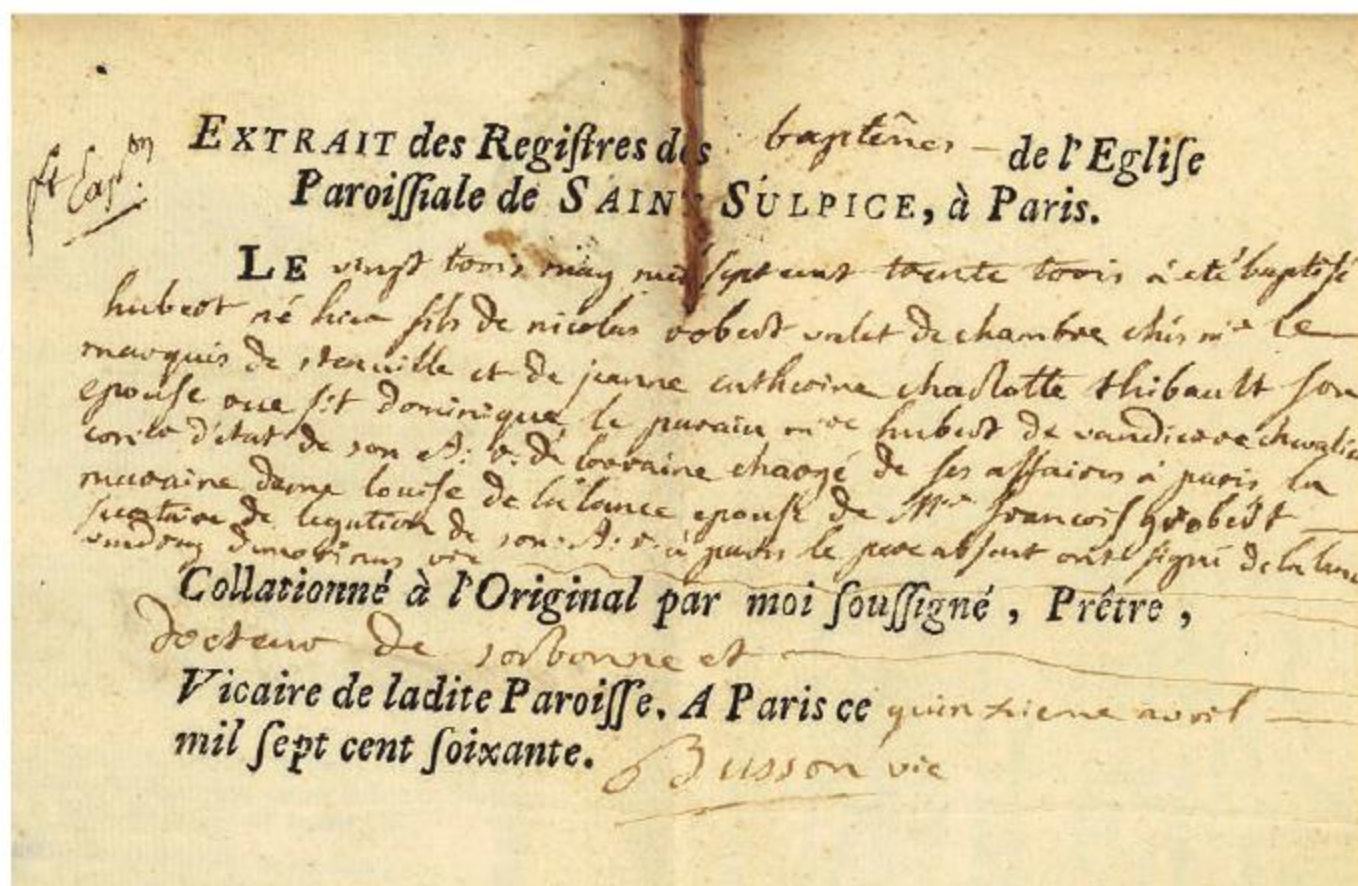 EXTRAIT des Regiſtres des baptêmes de l'Egliſe
Paroiſſiale de SAINT SULPICE, à Paris.
LE vingt trois may mil sept cent trente trois a eté baptisé
hubert né hier fils de nicolas robert valet de chambre chés mr le
marquis de et de jeanne catherine charlotte thibault son
epouse rue st dominique, le parain mre hubert de vandiere chevalier
d'état de son A: r: de lorraine chargé de ses affaires à paris la
maraine dame louise de lalance epouse de Mre françois
secretaire de legation de son: A: r: à paris le pere absent ont signé de la lance
vic
Collationné à l'Original par moi ſouſſigné, Prêtre,
docteur de sorbonne et
Vicaire de ladite Paroiſſe. A Paris ce quinzieme avril
mil ſept cent ſoixante. Busson vic